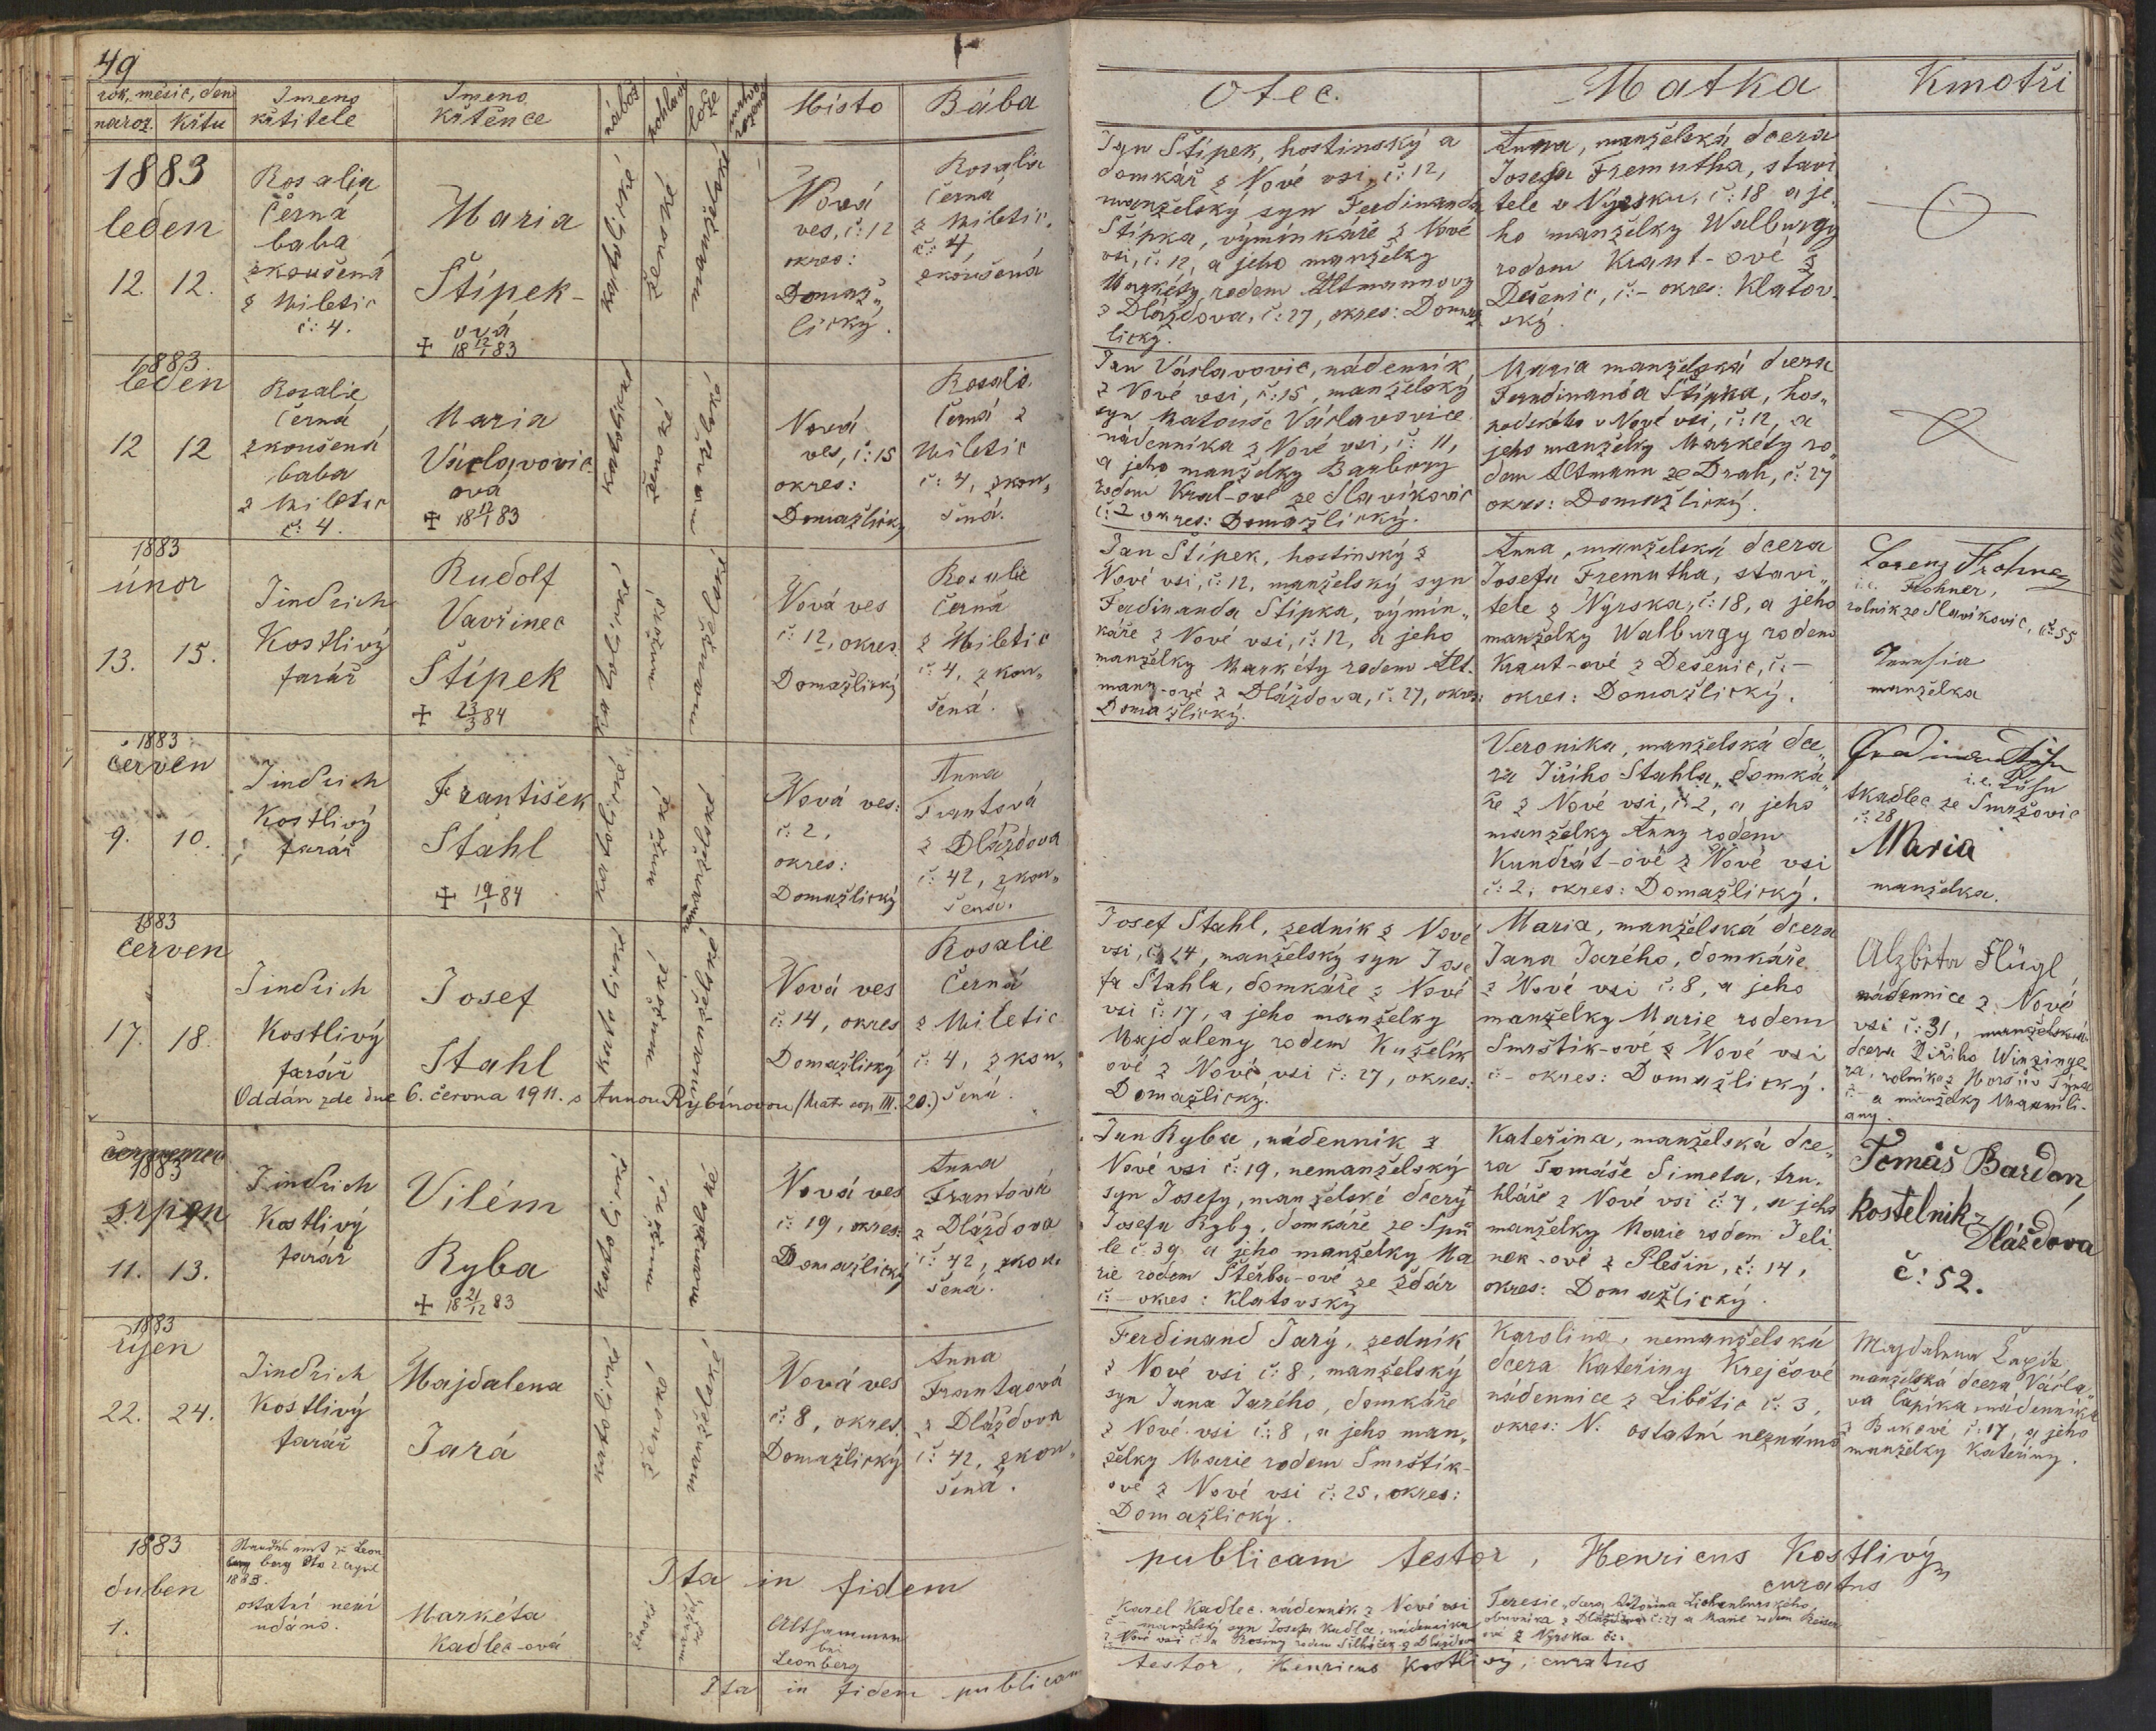 49
rok, měsíc, den
naroz. Křtu
Jmeno
křtitele
Jmeno
křtěnce
nábož.
pohlaví
lože
mrtvo
rozené
Místo
Bába
Otec.
Matka
Kmotři
1883
leden
12. 12.
Rosalia
Černá
baba
zkoušená
z Miletic
č: 4.
Maria
Štípek-
ová
+ 18 12/1 83
katolické
ženské
manželské
Nová
ves, č: 12
okres:
Domaž„
lický.
Rosalia
Černá
z Miletic,
č: 4,
zkoušená
Jan Štípek, hostinský a
domkář z Nové vsi, č: 12,
manželský syn Ferdinanda
Štípka, výmínkáře z Nové
vsi, č: 12, a jeho manželky
Markéty rodem Altmannovy
z Dlážďova, č: 27, okres: Domaž
lický.
Anna, manželská dcera
Josefa Fremutha, stavi
tele v Nýrsku, č: 18 a je„
ho manželky Walburgy
rodem Kraut-ové z
Dešenic, č: – okres: Klatov„
ský.
1883
leden
12 12
Rosalie
Černá
zkoušená
baba
z Miletic
č: 4.
Maria
Václavovic
ová
+ 18 12/1 83
katolické
ženské
manželské
Nová
ves, č: 15
okres:
Domažlický
Rosalie
Černá z
Miletic
č: 4, zkou„
šená.
Jan Václavovic, nádenník
z Nové vsi, č: 15, manželský
syn Matouše Václavovice
nádenníka z Nové vsi, č: 11,
a jeho manželky Barbory
rodem Král-ové ze Slavíkovic
č: 2 okres: Domažlický.
Maria manželská dcera
Ferdinanda Štípka, hos„
podského v Nové vsi, č: 12, a
jeho manželky Markéty ro„
dem Altmann ze Drah, č: 27
okres: Domažlický.
1883
únor
13. 15.
Jindřich
Kostlivý
farář
Rudolf
Vavřinec
Štípek
+ 23/3 84
katolické
mužské
manželské
Nová ves
č: 12, okres
Domažlický
Rosalie
Černá
z Miletic
č: 4, zkou„
šená.
Jan Štípek, hostinský z
Nové vsi, č: 12, manželský syn
Ferdinanda Štípka, výmín„
káře z Nové vsi, č: 12, a jeho
manželky Markéty rodem Alt„
mann-ové z Dlážďova, č: 27, okres:
Domažlický.
Anna, manželská dcera
Josefa Fremutha, stavi„
tele z Nýrska, č: 18, a jeho
manželky Walburgy rodem
Kraut-ové z Dešenic, č: –
okres: Domažlický.
Lorenz Frohner
i.e. Flohner,
rolník ze Slavíkovic, č: 55
manželka
1883
červen
9. 10.
Jindřich
Kostlivý
farář
František
Stahl
+ 19/1 84
katolické
mužské
nemanželské
Nová ves:
č: 2,
okres:
Domažlický
Anna
Frantová
z Dlážďova
č: 42, zkou„
šená.
Veronika, manželská dce„
ra Jiřího Stahla, domká„
ře z Nové vsi, č: 2, a jeho
manželky Anny rodem
Kundrát-ové z Nové vsi
č: 2, okres: Domažlický.
tkadlec ze Smržovic
č: 28
Maria
manželka.
1883
červen
17. 18.
Jindřich
Kostlivý
farář
Josef
Stahl
katolické
mužské
manželské
Nová ves
č: 14, okres
Domažlický
Rosalie
Černá
z Miletic
č: 4, zkou„
šená.
Josef Stahl, zedník z Nové
vsi, č: 14, manželský syn Jose
fa Stahla, domkáře z Nové
vsi č: 17, a jeho manželky
Majdaleny rodem Kuželík
ové z Nové vsi č: 27, okres:
Domažlický.
Maria, manželská dcera
Jana Jarého, domkáře
z Nové vsi č: 8, a jeho
manželky Marie rodem
Smrštík-ové z Nové vsi
č– okres: Domažlický.
Alzběta Flügl
nádennice z Nové
vsi č: 31, manželská
dcera Jiřího Winzinge„
ra, rolníka z Horšův Týna
č– a manželky Maxmili-
any.
Oddán zde dne 6. června 1911. s Annou Rybínovou (Matr. cop. III. 20.)
1883
srpen
11. 13.
Jindřich
Kostlivý
farář
Vilém
Ryba
+ 18 21/12 83
katolické
mužské
manželské
Nová ves
č: 19, okres:
Domažlický
Anna
Frantová
z Dlážďova
č: 42, zkou„
šená.
Jan Ryba, nádenník z
Nové vsi č: 19, nemanželský
syn Josefy, manželské dcery
Josefa Ryby, domkáře ze Spů
le č: 39 a jeho manželky Ma
rie rodem Štěrba-ové ze Žďár
č– okres: Klatovský
Kateřina, manželská dce„
ra Tomáše Simeta, tru„
hláře z Nové vsi č: 7, a jeho
manželky Marie rodem Jelí„
nek-ové z Plešin, č: 14,
okres: Domažlický.
Tomáš Bardon,
kostelník z
Dlážďova
č: 52.
1883
říjen
22. 24.
Jindřich
Kostlivý
farář
Majdalena
Jará
katolické
ženské
manželské
Nová ves
č: 8, okres.
Domažlický
Anna
Frantaová
z Dlážďova
č: 42, zkou„
šená.
Ferdinand Jarý, zedník
z Nové vsi č: 8, manželský
syn Jana Jarého, domkáře
z Nové vsi č: 8, a jeho man„
želky Marie rodem Smrštík-
ové z Nové vsi č: 25, okres:
Domažlický.
Karolina, nemanželská
dcera Kateřiny Krejčové
nádennice z Libětic č: 3,
okres: N. ostatní neznámo
Majdalena Čapík,
manželská dcera Václa„
va Čapíka nádenníka
z Bukové č: 17, a jeho
manželky Kateřiny.
Ita in fidem publicam testor, Henricus Kostlivý
curatus
1883
duben
1.
Standes amt zu Leon
berg dto 2 April
1883.
ostatní není
udáno.
Markéta
Kadlec-ová
ženské
Althammer
bei
Leonberg
Karel Kadlec, nádenník z Nové vsi
manželský syn Josefa Kadlce, nádenníka
z Nové vsi č: a Rosiny rodem z Dlážďova
Teresie, dcera Antonína Lichtenburského,
obuvníka z Dlážďova č: 27 a Marie rodem
ové z Nýrska č:.
Ita in fidem publicam testor, Henricus Kostlivý, curatus